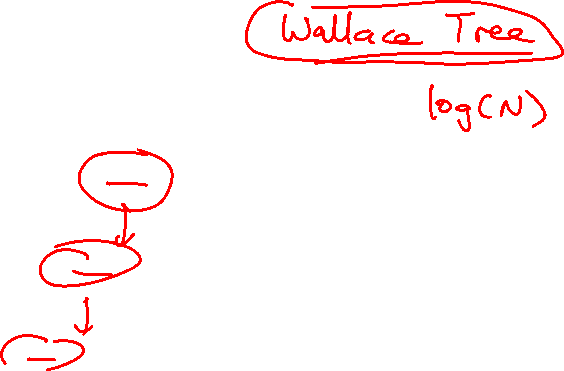 Wallace Tree
log(N)